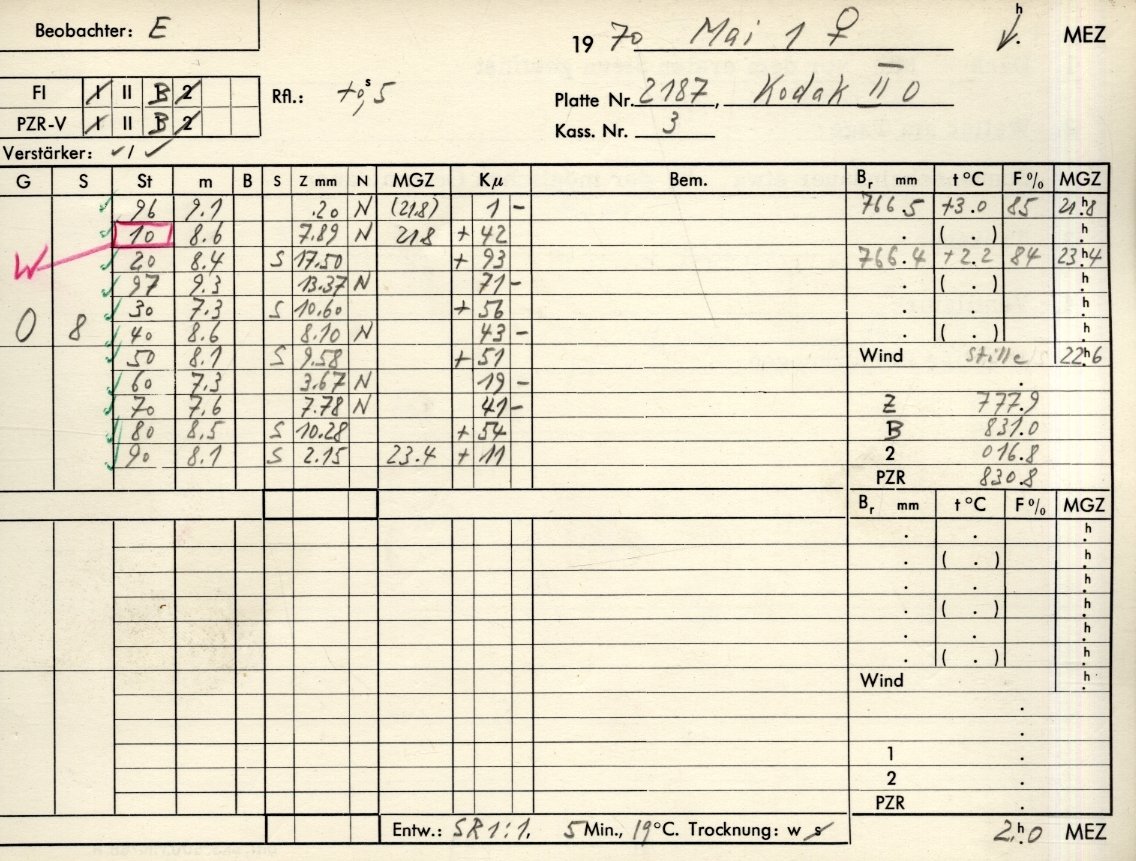 Beobachter: E
19 70 Mai 1 ♀ h . MEZ
FI I II B 2
PZR-V I II B 2
Rfl.: +0,ˢ5
Platte Nr. 2187, Kodak II 0
Kass. Nr. 3
Verstärker: ✓ / ✓
G S St m B S Z mm N MGZ Kµ Bem. Bᵣ mm t °C F % MGZ
96 9.1 .20 N (21.8) 1 - 766.5 +3.0 85 21ʰ8
10 8.6 7.89 N 21.8 + 42 . ( . ) h.
W 20 8.4 S 17.50 + 93 766.4 +2.2 84 23ʰ4
97 9.3 13.37 N 71 - . ( . ) h.
0 8 30 7.3 S 10.60 + 56 . . h.
40 8.6 8.10 N 43 - . ( . ) h.
50 8.1 S 9.58 + 51 Wind Stille 22ʰ6
60 7.3 3.67 N 19 - .
70 7.6 7.78 N 41 - Z 777.9
80 8.5 S 10.28 + 54 B 831.0
90 8.1 S 2.15 23.4 + 11 2 016.8
PZR 830.8
Bᵣ mm t °C F % MGZ
. . h.
. ( . ) h.
. . h.
. ( . ) h.
. . h.
. ( . ) h.
Wind h.
.
.
1 .
2 .
PZR .
Entw.: SR 1:1. 5 Min., 19 °C. Trocknung: w s 2.ʰ0 MEZ